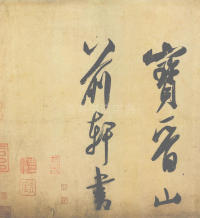 寶晉山
前軒書